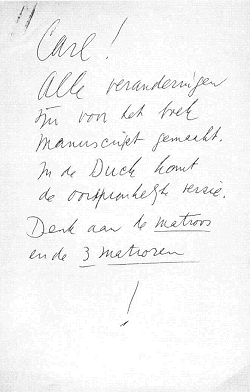 Carl!
Alle veranderingen
zijn voor het boek
manuscript gemaakt.
In de Duck komt
de oorspronkelijke versie.
Denk aan de matroos
en de 3 matrozen
!